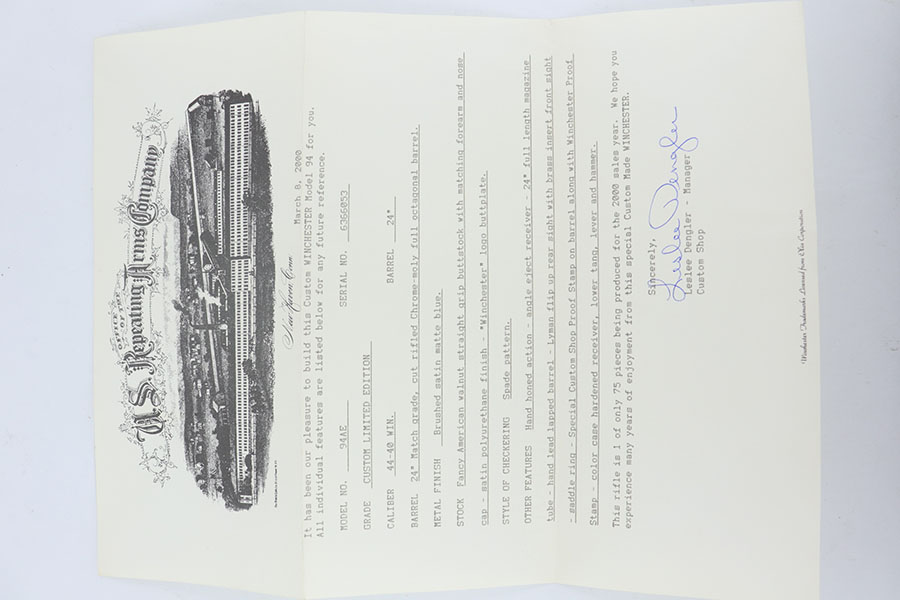 OFFICE
OF THE
U.S. Repeating Arms Company
New Haven Conn.
March 8, 2000
It has been our pleasure to build this Custom WINCHESTER Model 94 for you.
All individual features are listed below for any future reference.
MODEL NO. 94AE SERIAL NO. 6366053
GRADE CUSTOM LIMITED EDITION
CALIBER 44-40 WIN. BARREL 24"
BARREL 24" Match grade, cut rifled Chrome-moly full octagonal barrel.
METAL FINISH Brushed satin matte blue.
STOCK Fancy American walnut straight grip buttstock with matching forearm and nose
cap - satin polyurethane finish - "Winchester" logo buttplate.
STYLE OF CHECKERING Spade pattern.
OTHER FEATURES Hand honed action - angle eject receiver - 24" full length magazine
tube - hand lead lapped barrel - Lyman flip up rear sight with brass insert front sight
- saddle ring - Special Custom Shop Proof Stamp on barrel along with Winchester Proof
Stamp - color case hardened receiver, lower tang, lever and hammer.
This rifle is 1 of only 75 pieces being produced for the 2000 sales year. We hope you
experience many years of enjoyment from this special Custom Made WINCHESTER.
Sincerely,
Leslee Dengler
Leslee Dengler - Manager
Custom Shop
Winchester Trademarks Licensed from Olin Corporation